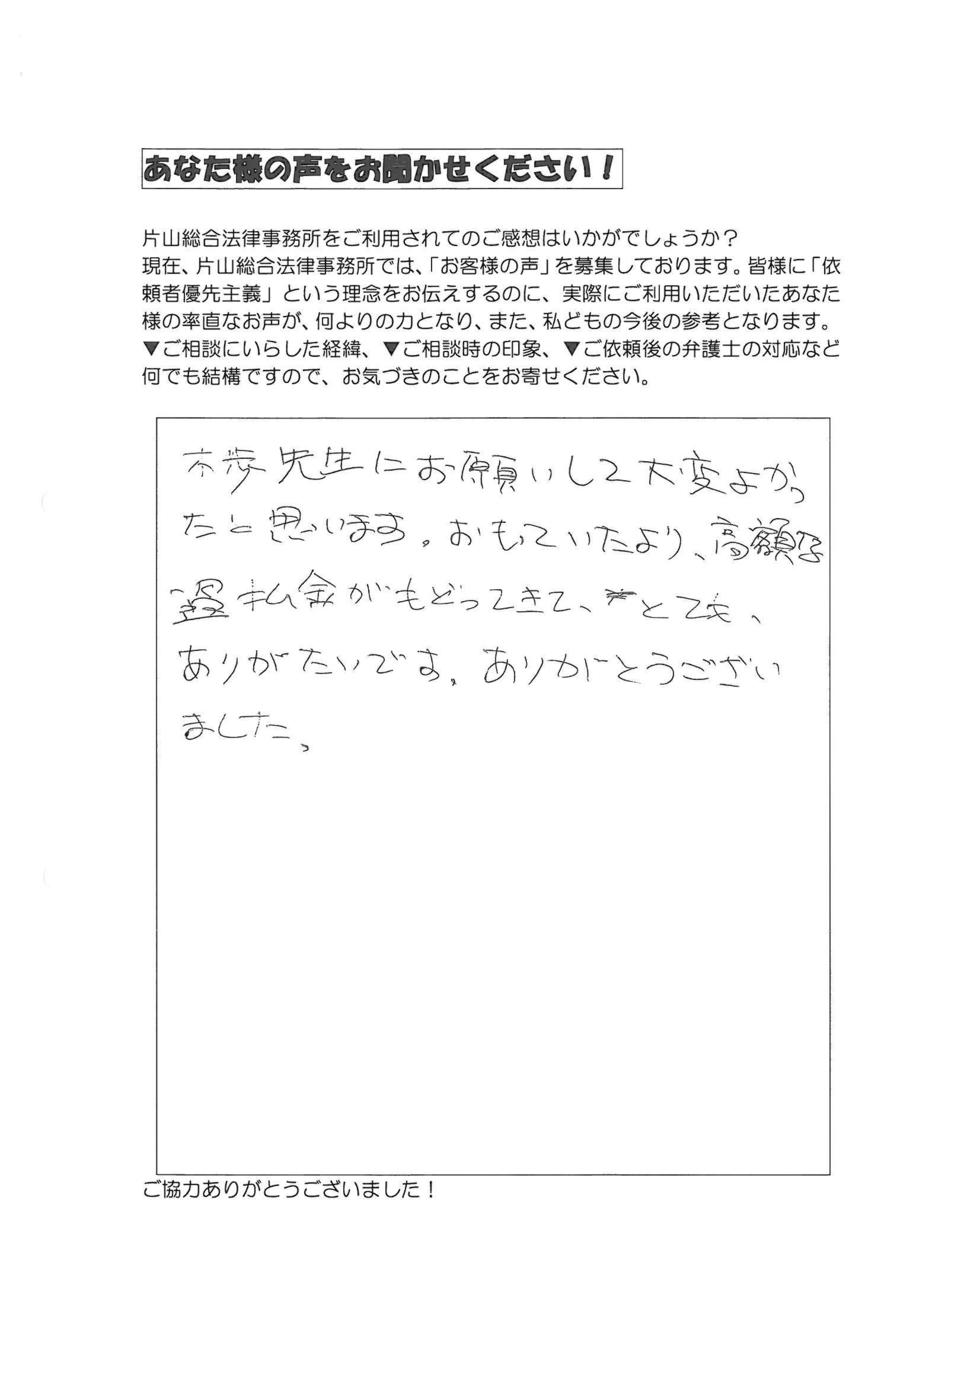 あなた様の声をお聞かせください！
片山総合法律事務所をご利用されてのご感想はいかがでしょうか？
現在、片山総合法律事務所では、「お客様の声」を募集しております。皆様に「依
頼者優先主義」という理念をお伝えするのに、実際にご利用いただいたあなた
様の率直なお声が、何よりの力となり、また、私どもの今後の参考となります。
▼ご相談にいらした経緯、▼ご相談時の印象、▼ご依頼後の弁護士の対応など
何でも結構ですので、お気づきのことをお寄せください。
先生にお願いして大変よかっ
たと思います。おもていたより、高額な
払金がもどってきて、とても、
ありがたいです。ありがとうござい
ました。
ご協力ありがとうございました！